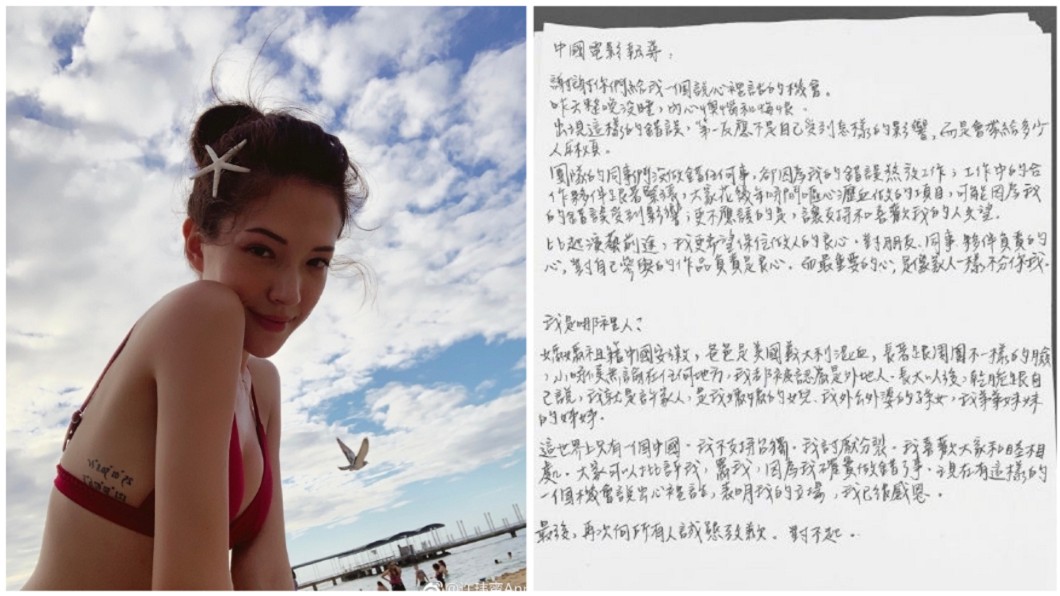 中國電影報導：
謝謝你們給我一個說心裡話的機會。
昨天整晚沒睡，內心懊惱和悔恨。
出現這樣的錯誤，第一反應不是自己受到怎樣的影響，而是會帶給多少
人麻煩。
團隊的同事們沒做錯任何事，卻因為我的錯誤終止工作；工作中的合
作夥伴跟著緊張，大家花幾年時間嘔心瀝血做的項目，可能因為我
的錯誤受到影響；更不應該的是，讓支持和喜歡我的人失望。
比起演藝前途，我更希望保住做人的良心。對朋友、同事、夥伴負責的
心，對自己參與的作品負責是良心。而最重要的心，是像家人一樣不分你我。
我是哪裡人？
媽媽祖籍中國安徽，爸爸是美國義大利混血，長著跟周圍不一樣的臉
，小時候無論在任何地方，我都被認為是外地人。長大以後，乾脆跟自
己說，我就是許家人，是我媽媽的女兒、我外公外婆的孫女，我弟弟妹妹
的姊姊。
這世界上只有一個中國。我不支持台獨。我討厭分裂。我喜歡大家和睦相
處。大家可以批評我，罵我，因為我確實做錯了事。現在有這樣的
一個機會說出心裡話，表明我的立場，我已經感恩。
最後，再次向所有人誠懇致歉。對不起。